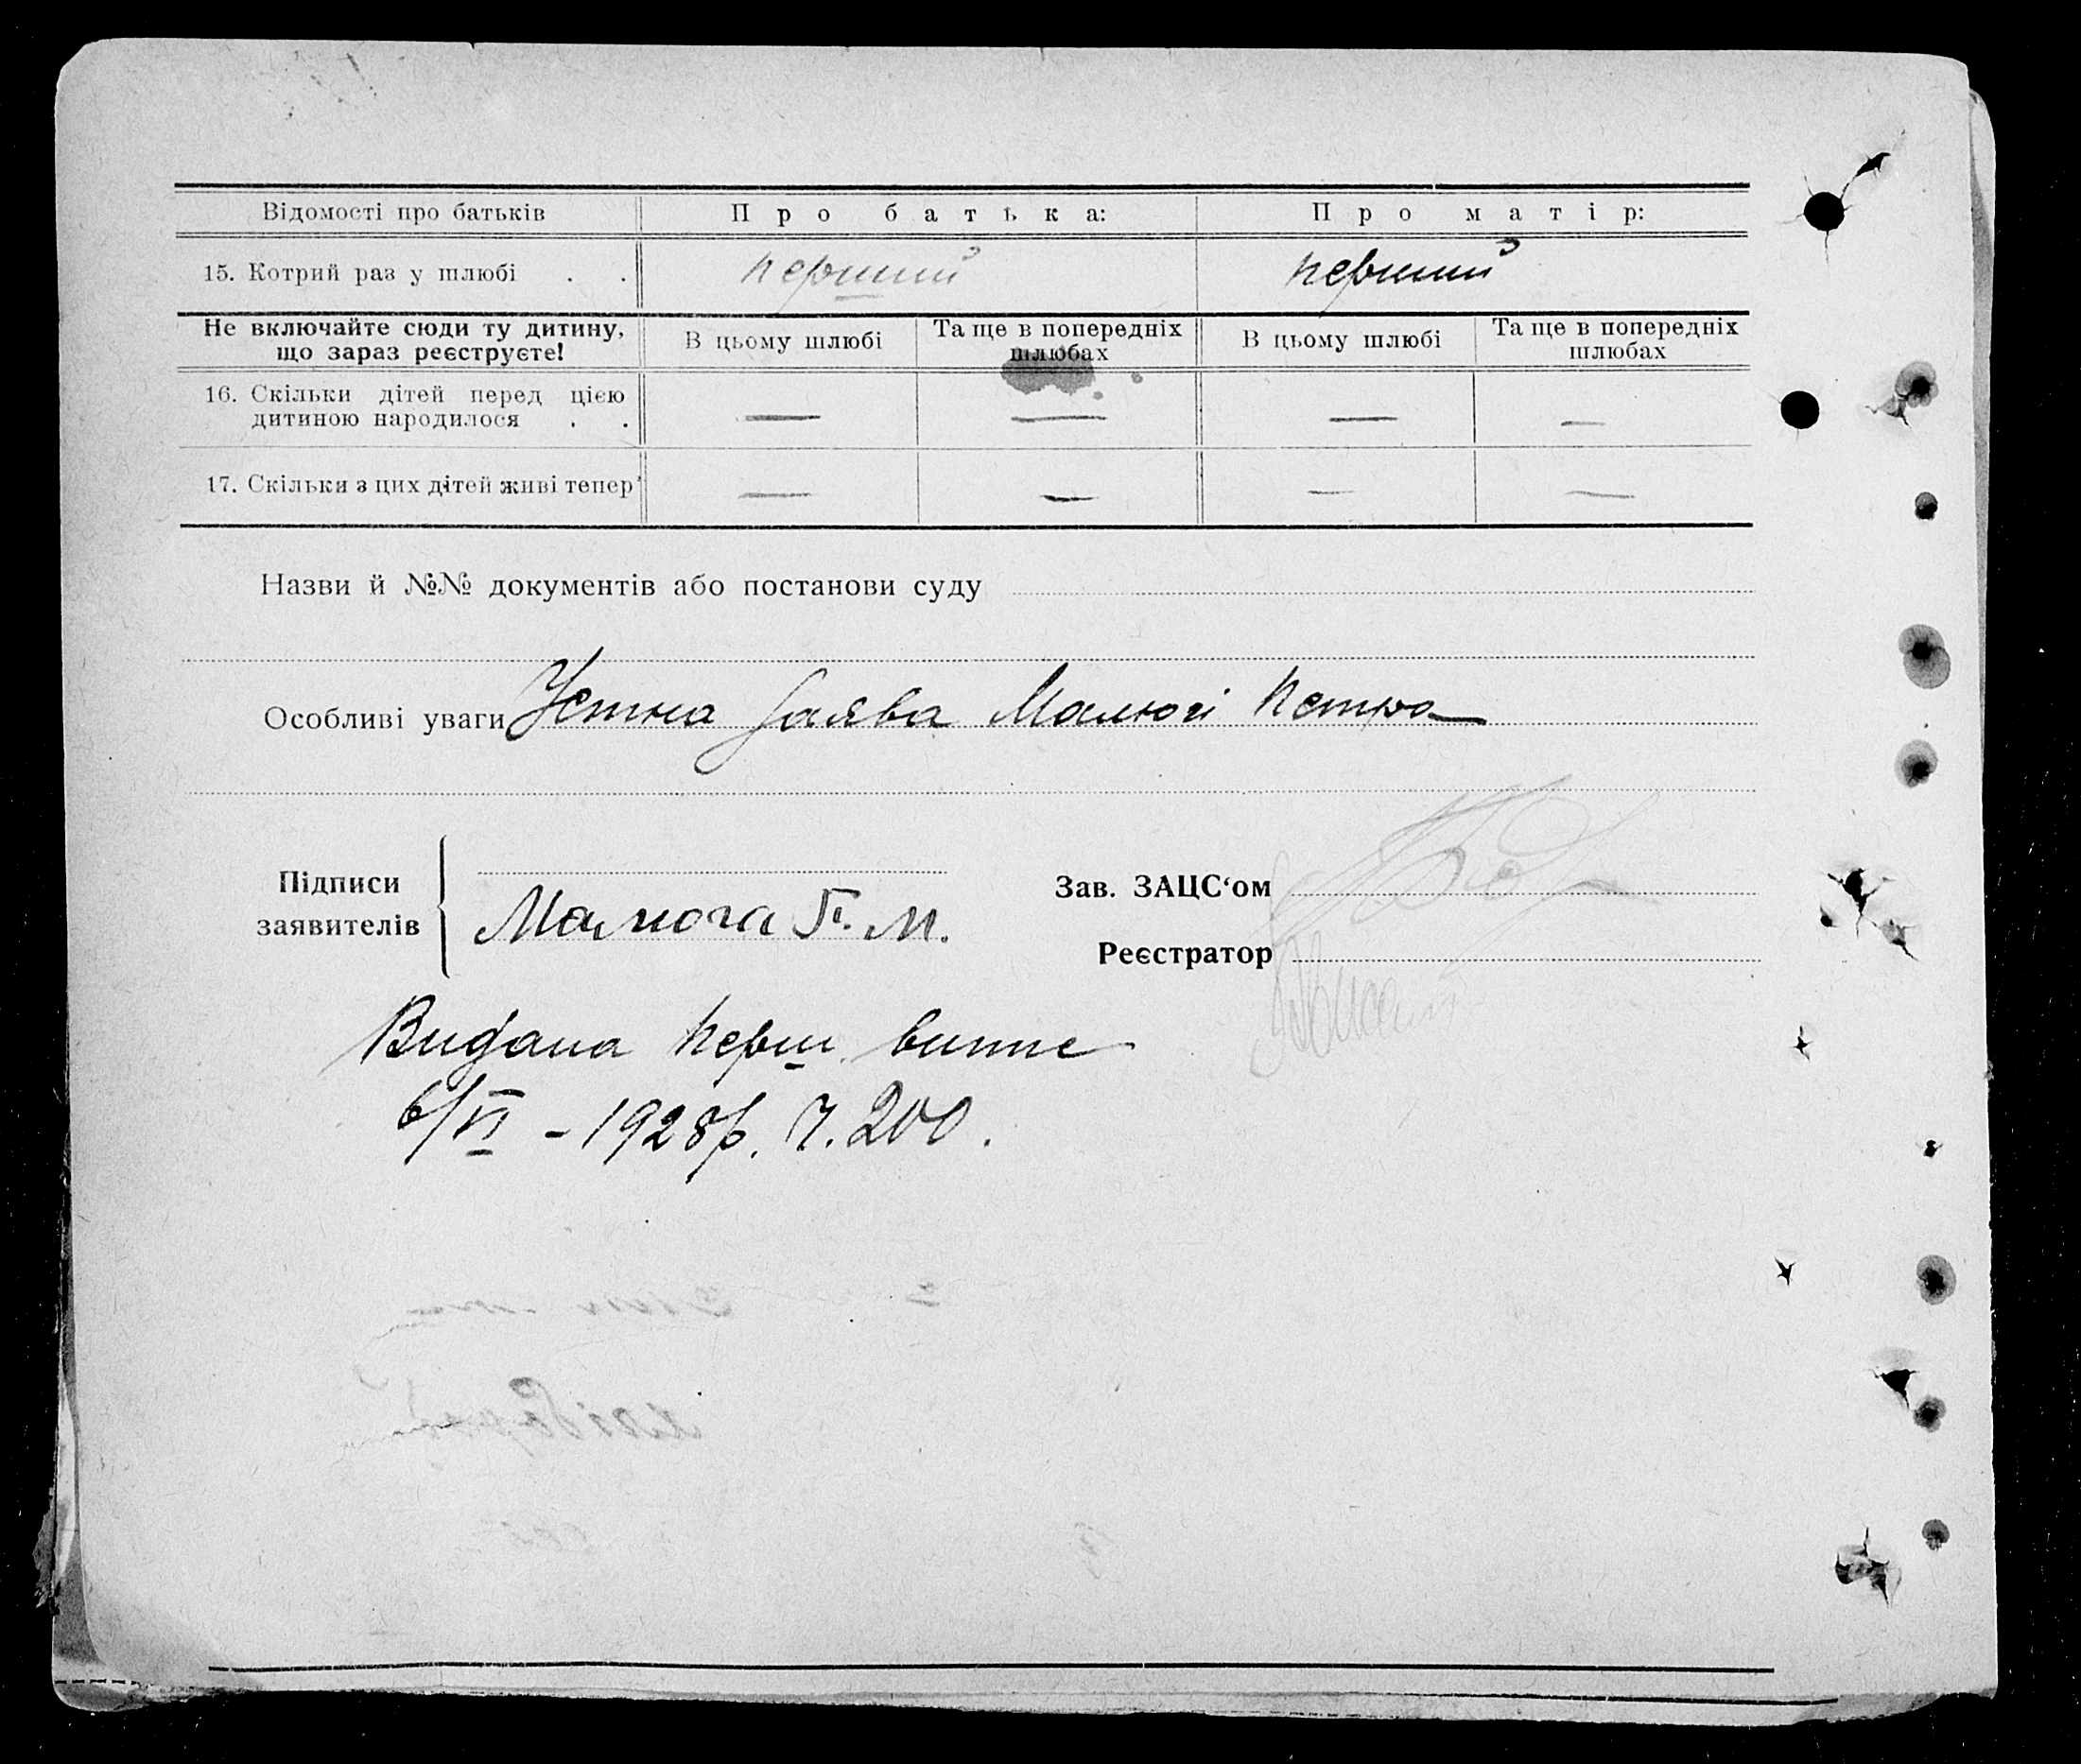 Відомості про батьків Про батька: Про матір:
15. Котрий раз у шлюбі . . перший перший
Не включайте сюди ту дитину, що зараз реєструєте!
В цьому шлюбі Та ще в попередніх шлюбах В цьому шлюбі Та ще в попередніх шлюбах
16. Скільки дітей перед цією
дитиною народилося . . — — — —
17. Скільки з цих дітей живі тепер — — — —
Назви й №№ документів або постанови суду
Особливі уваги Устна заява Малюги Петра
Підписи
заявителів
Малюга П. М.
Зав. ЗАЦС‘ом
Реєстратор
Видана перш. випис
6/VI - 1928р. Ч. 200.